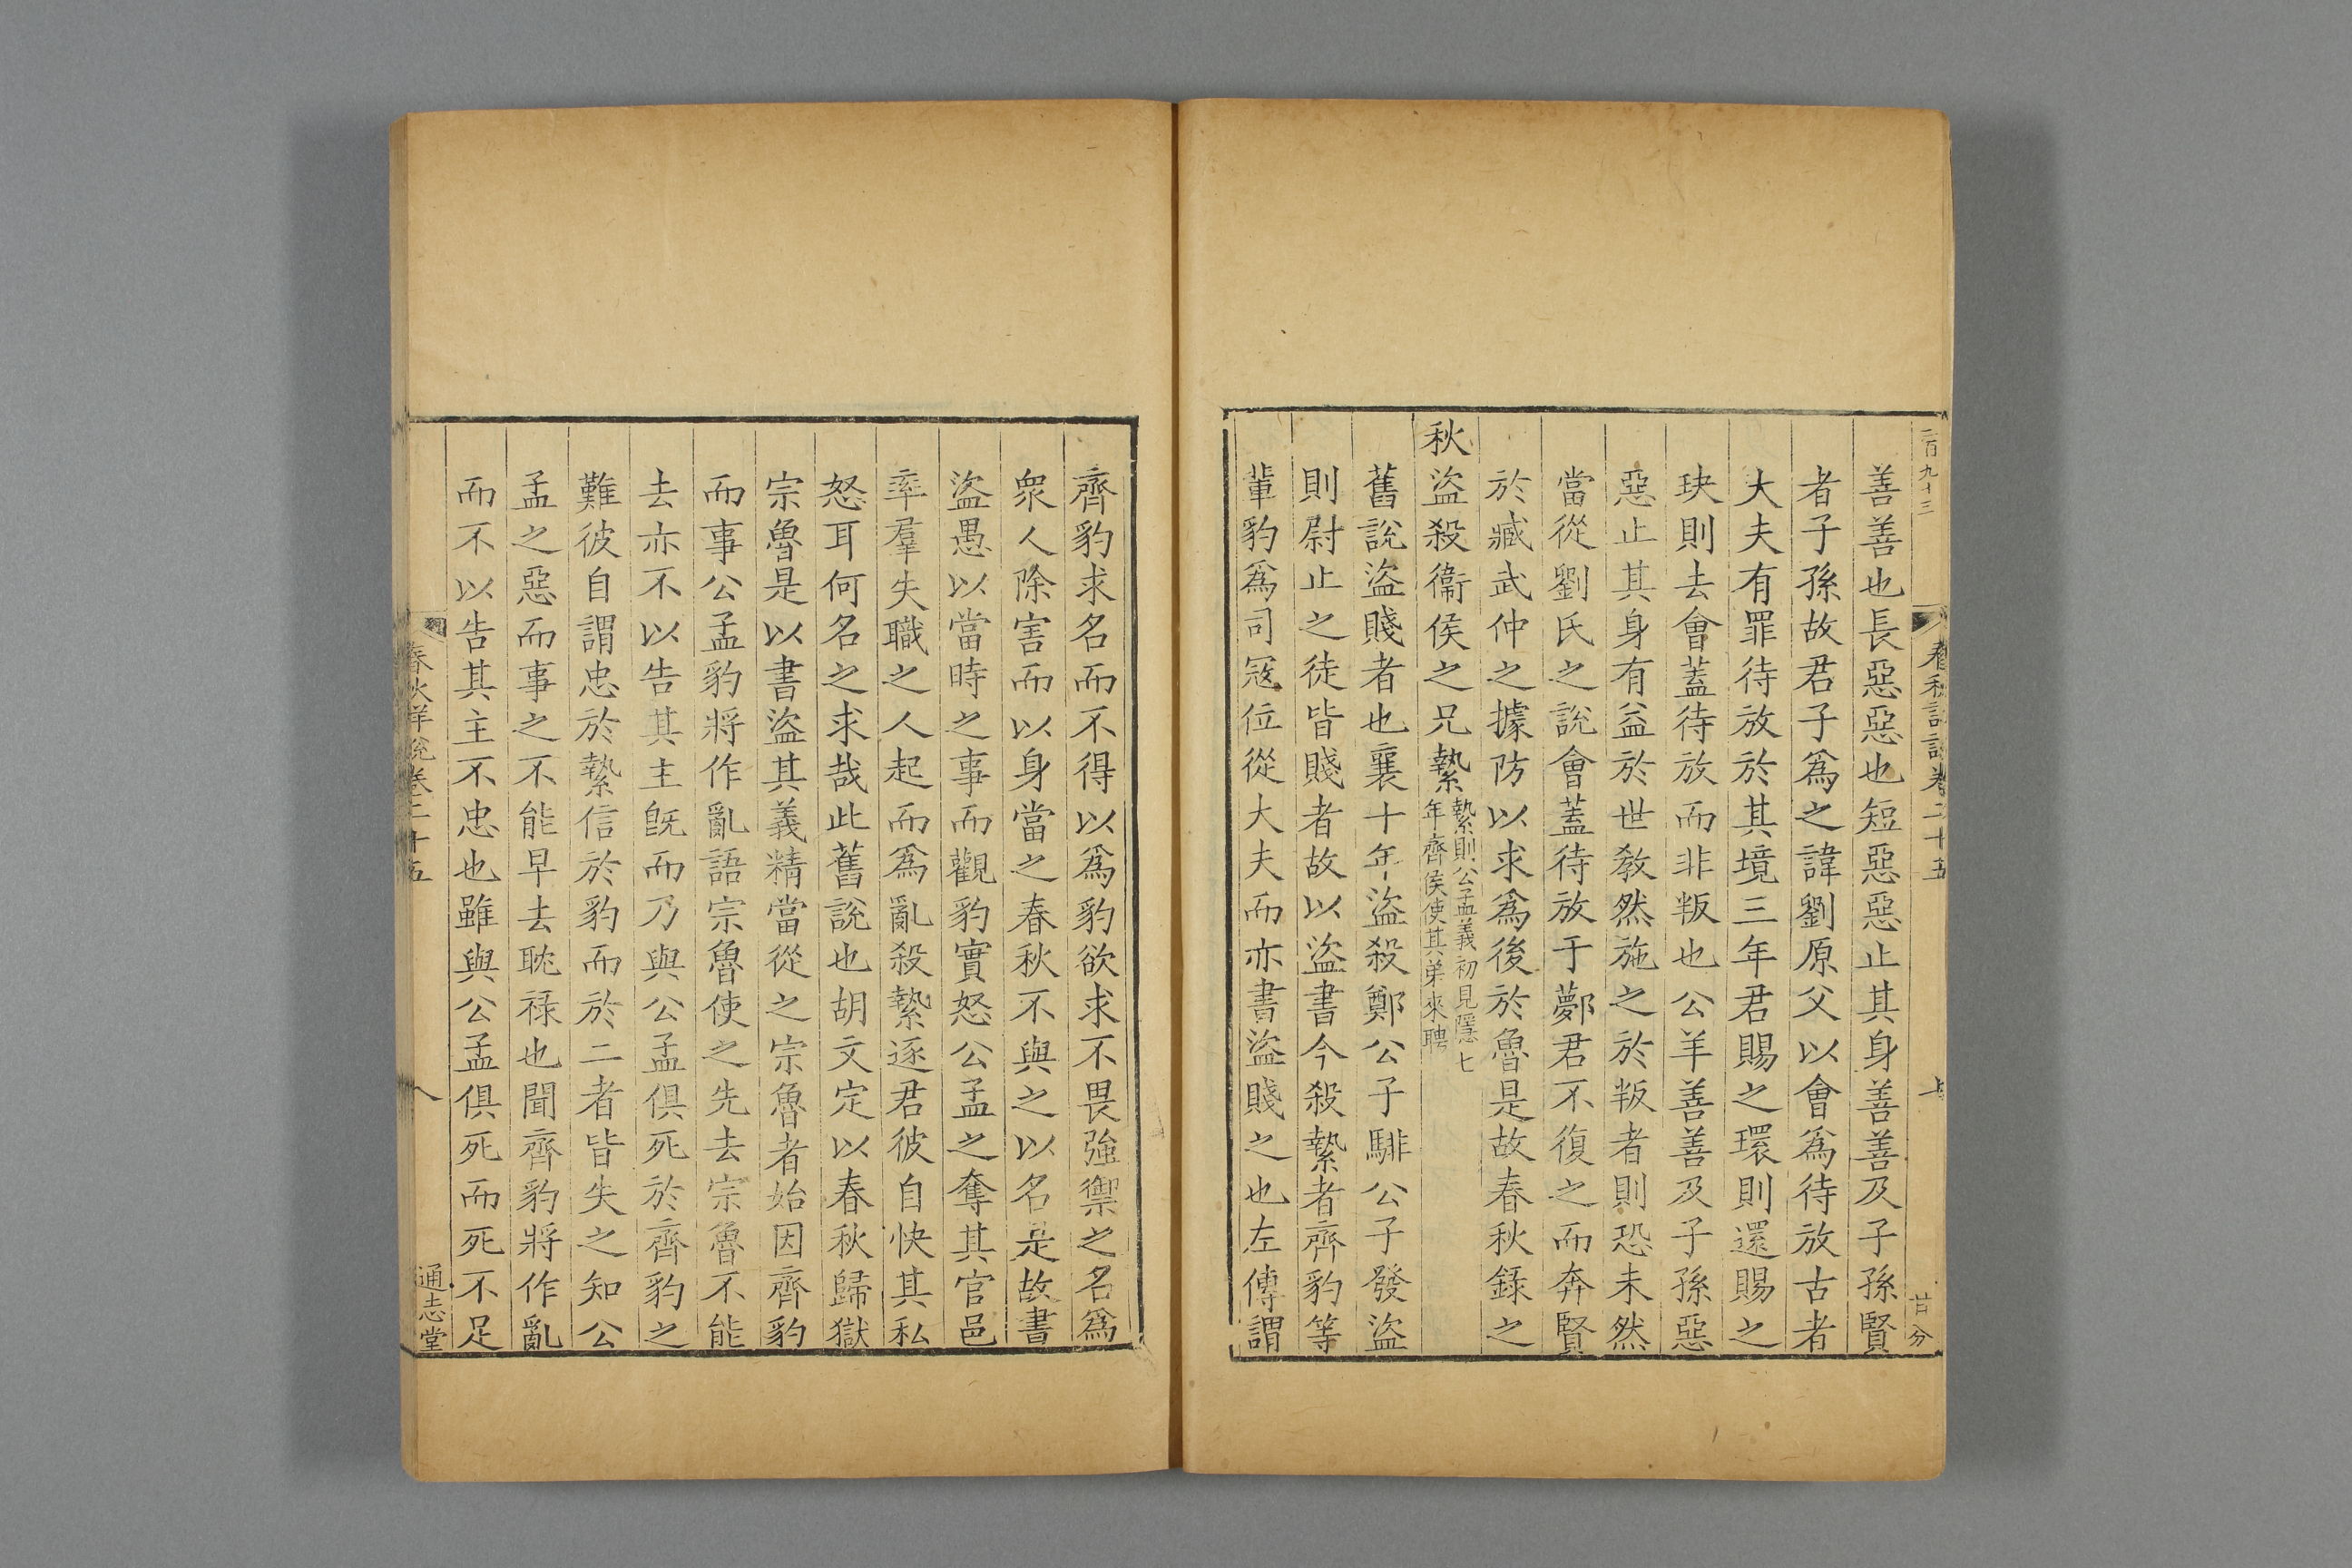 二百九十三
善善也長惡惡也短惡惡止其身善善及子孫賢
者子孫故君子爲之諱劉原父以會爲待放古者
大夫有罪待放於其境三年君賜之環則還賜之
玦則去會蓋待放而非叛也公羊善善及子孫惡
惡止其身有益於世教然施之於叛者則恐未然
當從劉氏之說會蓋待放于鄸君不復之而奔賢
於臧武仲之據防以求爲後於魯是故春秋錄之
秋盜殺衞侯之兄縶縶則公孟義初見隱七
年齊侯使其弟來聘
舊說盜賤者也襄十年盜殺鄭公子騑公子發盜
則尉止之徒皆賤者故以盜書今殺縶者齊豹等
輩豹爲司寇位從大夫而亦書盜賤之也左傳謂
齊豹求名而不得以爲豹欲求不畏強禦之名爲
衆人除害而以身當之春秋不與之以名是故書
盜愚以當時之事而觀豹實怒公孟之奪其官邑
率羣失職之人起而爲亂殺縶逐君彼自快其私
怒耳何名之求哉此舊說也胡文定以春秋歸獄
宗魯是以書盜其義精當從之宗魯者始因齊豹
而事公孟豹將作亂語宗魯使之先去宗魯不能
去亦不以告其主旣而乃與公孟俱死於齊豹之
難彼自謂忠於縶信於豹而於二者皆失之知公
孟之惡而事之不能早去耽祿也聞齊豹將作亂
而不以告其主不忠也雖與公孟俱死而死不足
春秋詳說卷二十五
八
通志堂